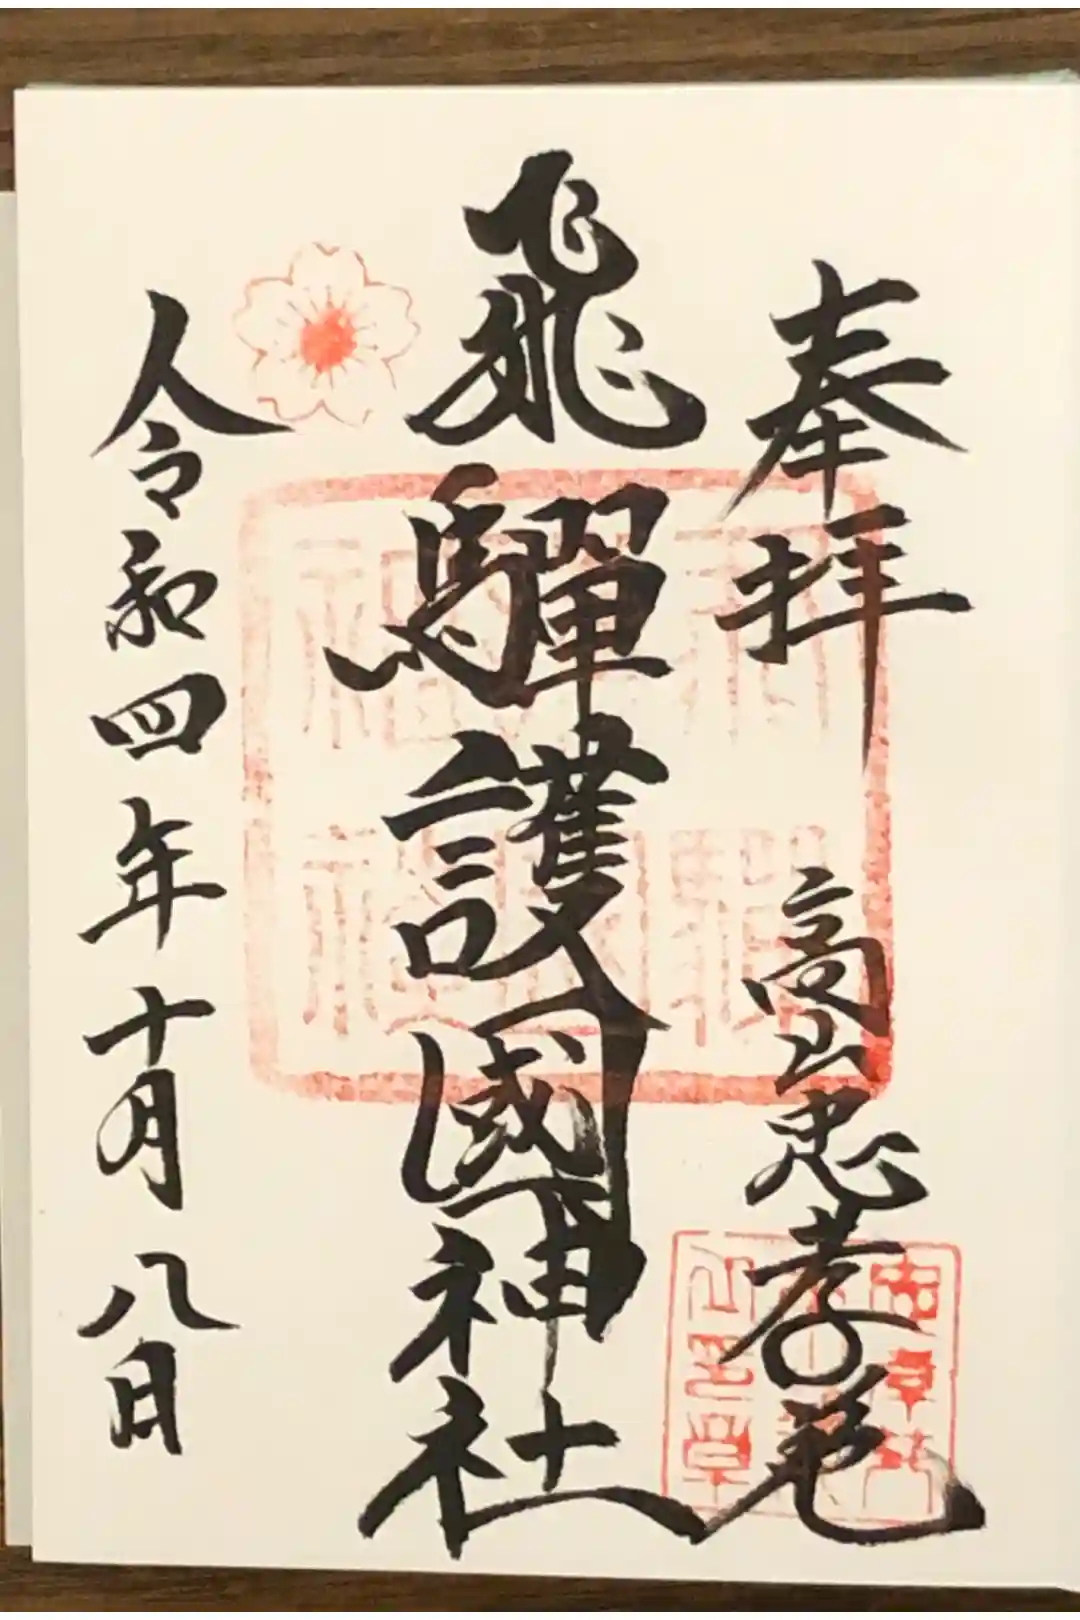 奉拝
高山忠孝苑
飛驒護國神社
令和四年十月八日